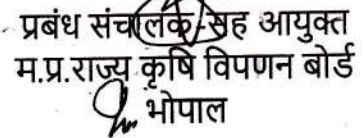 प्रबंध संचालक-सह आयुक्त
म.प्र.राज्य कृषि विपणन बोर्ड
भोपाल